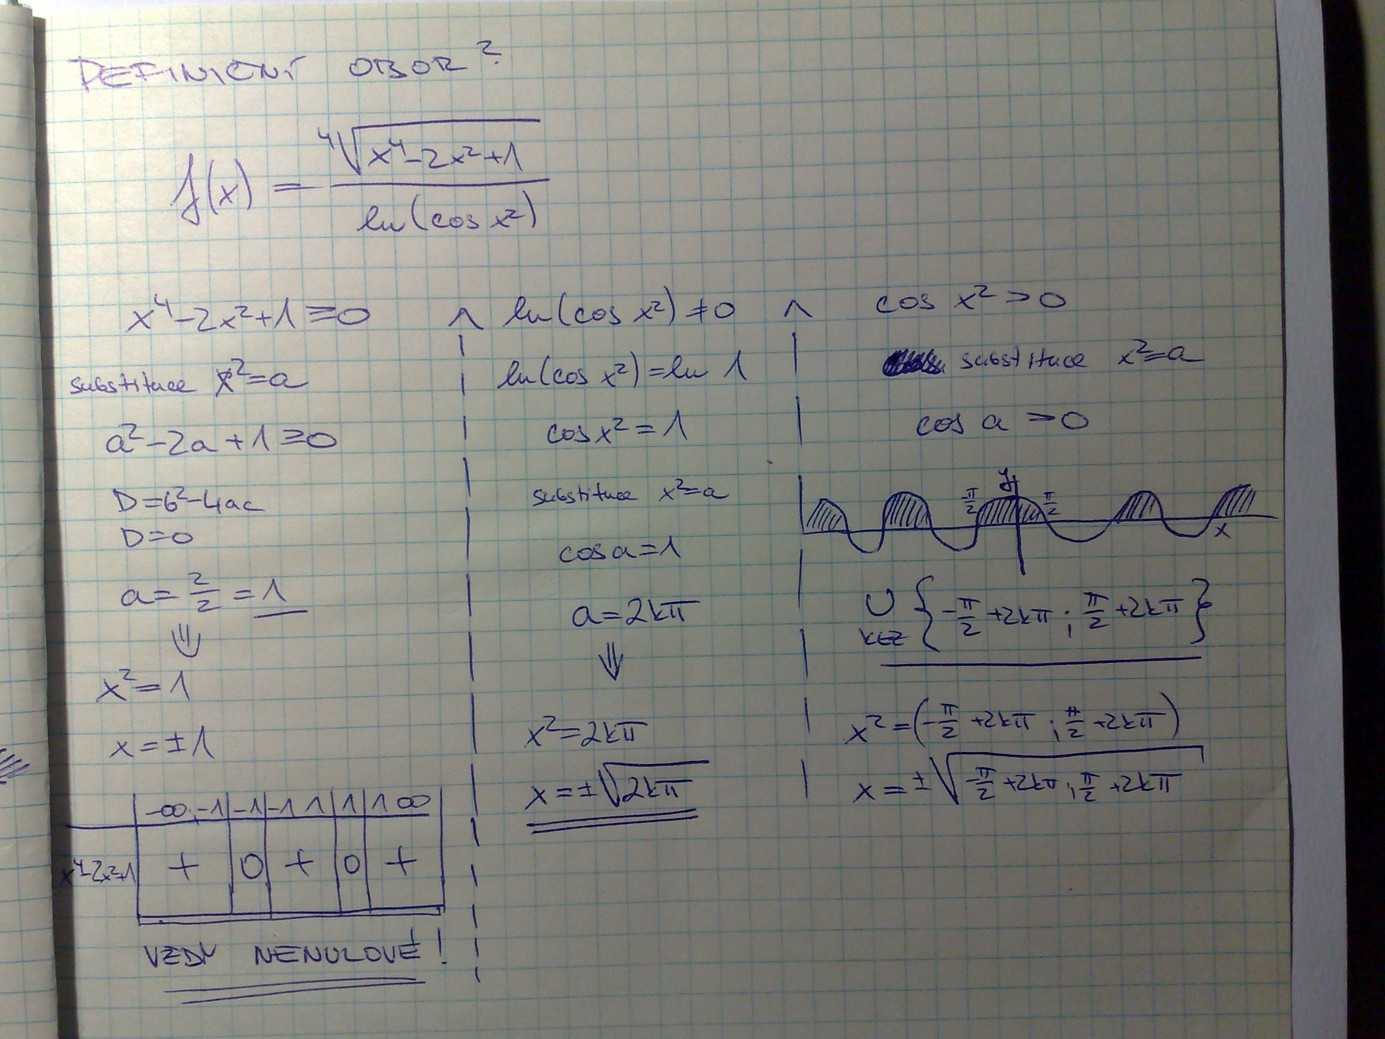 DEFINIČNÍ OBOR?
f(x) = ∜(x⁴-2x²+1) / ln(cos x²)
x⁴-2x²+1 ≥0 ∧ ln(cos x²) ≠0 ∧ cos x² >0
substituce x²=a
a²-2a+1 ≥0
D=b²-4ac
D=0
a= 2/2 = 1
⇓
x²=1
x=±1
-∞,-1 | -1 | -1 1 | 1 | 1 ∞
x⁴-2x²+1 | + | 0 | + | 0 | +
VŽDY NENULOVÉ!
ln(cos x²)=ln 1
cos x² = 1
substituce x²=a
cos a=1
a=2kπ
⇓
x²=2kπ
x=±√(2kπ)
substituce x²=a
cos a >0
y
π/2 π/2
x
∪ k∈Z { -π/2 +2kπ ; π/2 +2kπ }
x²=(-π/2 +2kπ ; π/2 +2kπ)
x=±√(-π/2 +2kπ ; π/2 +2kπ)